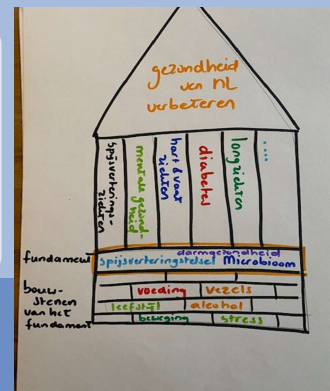 gezondheid
van NL
verbeteren
spijsverterings-
ziekten
mentale gezond-
heid
hart & vaat
ziekten
diabetes
longziekten
....
fundament
darmgezondheid
spijsverteringstelsel Microbioom
bouw-
stenen
van het
fundament
voeding vezels
leefstijl alcohol
beweging stress